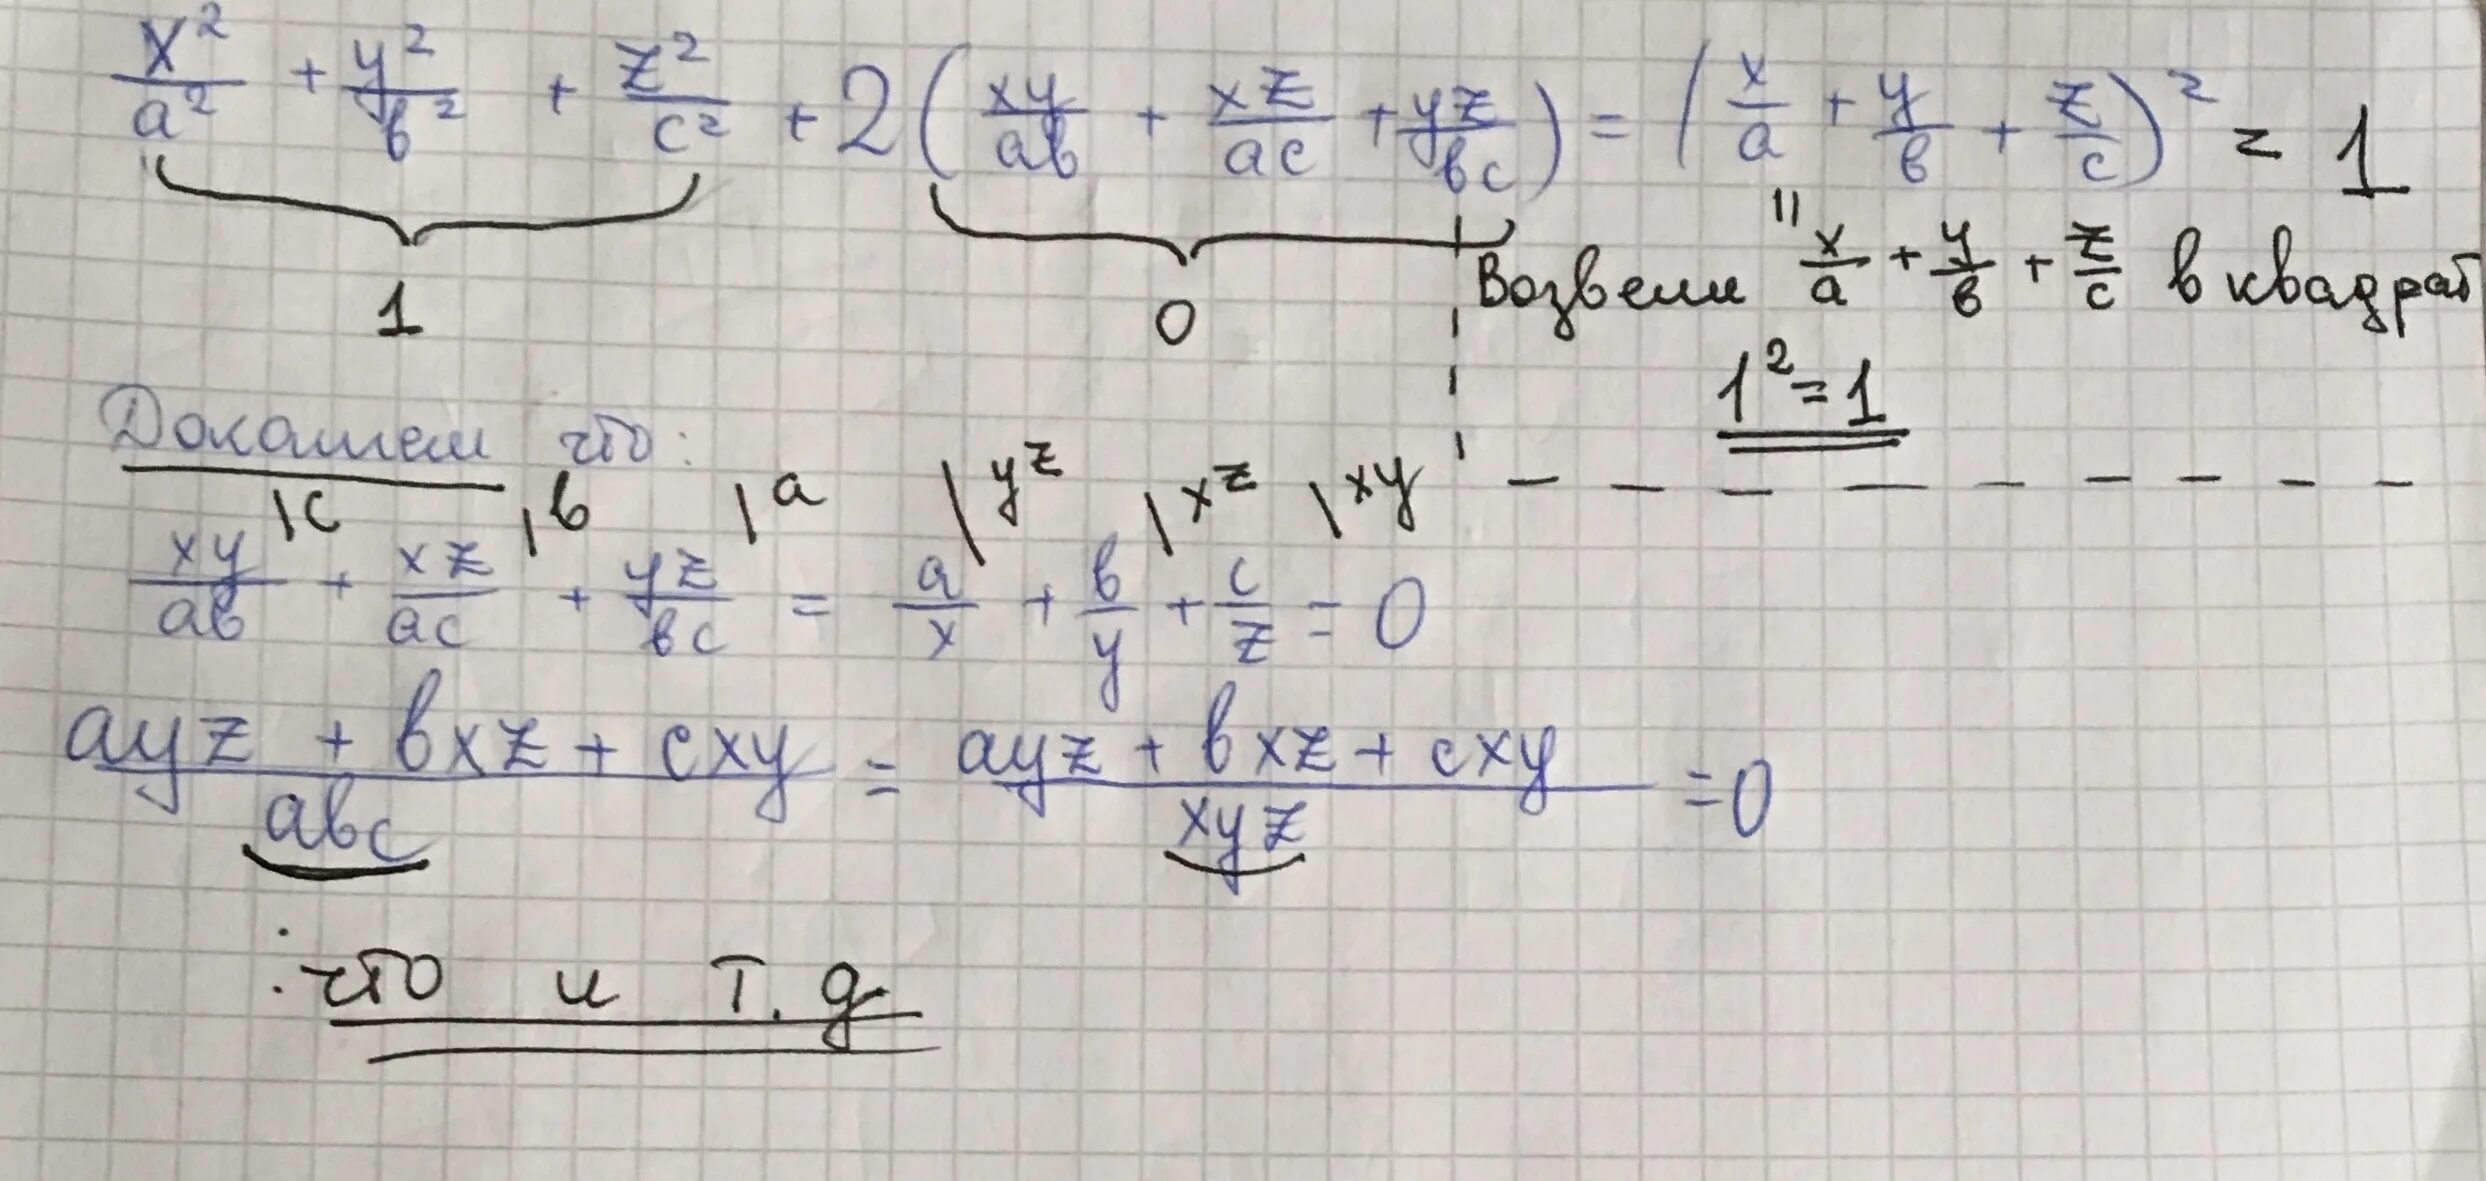 x²/a² + y²/в² + z²/c² + 2(xy/aв + xz/ac + yz/вc) = (x/a + y/в + z/c)² = 1
1
0
Возвели "x/a + y/в + z/c в квадрат
1² = 1
Докажем что:
\c \в \a \yz \xz \xy
xy/aв + xz/ac + yz/вc = a/x + в/y + c/z = 0
ayz + вxz + cxy/aвc = ayz + вxz + cxy/xyz = 0
: что и т.д